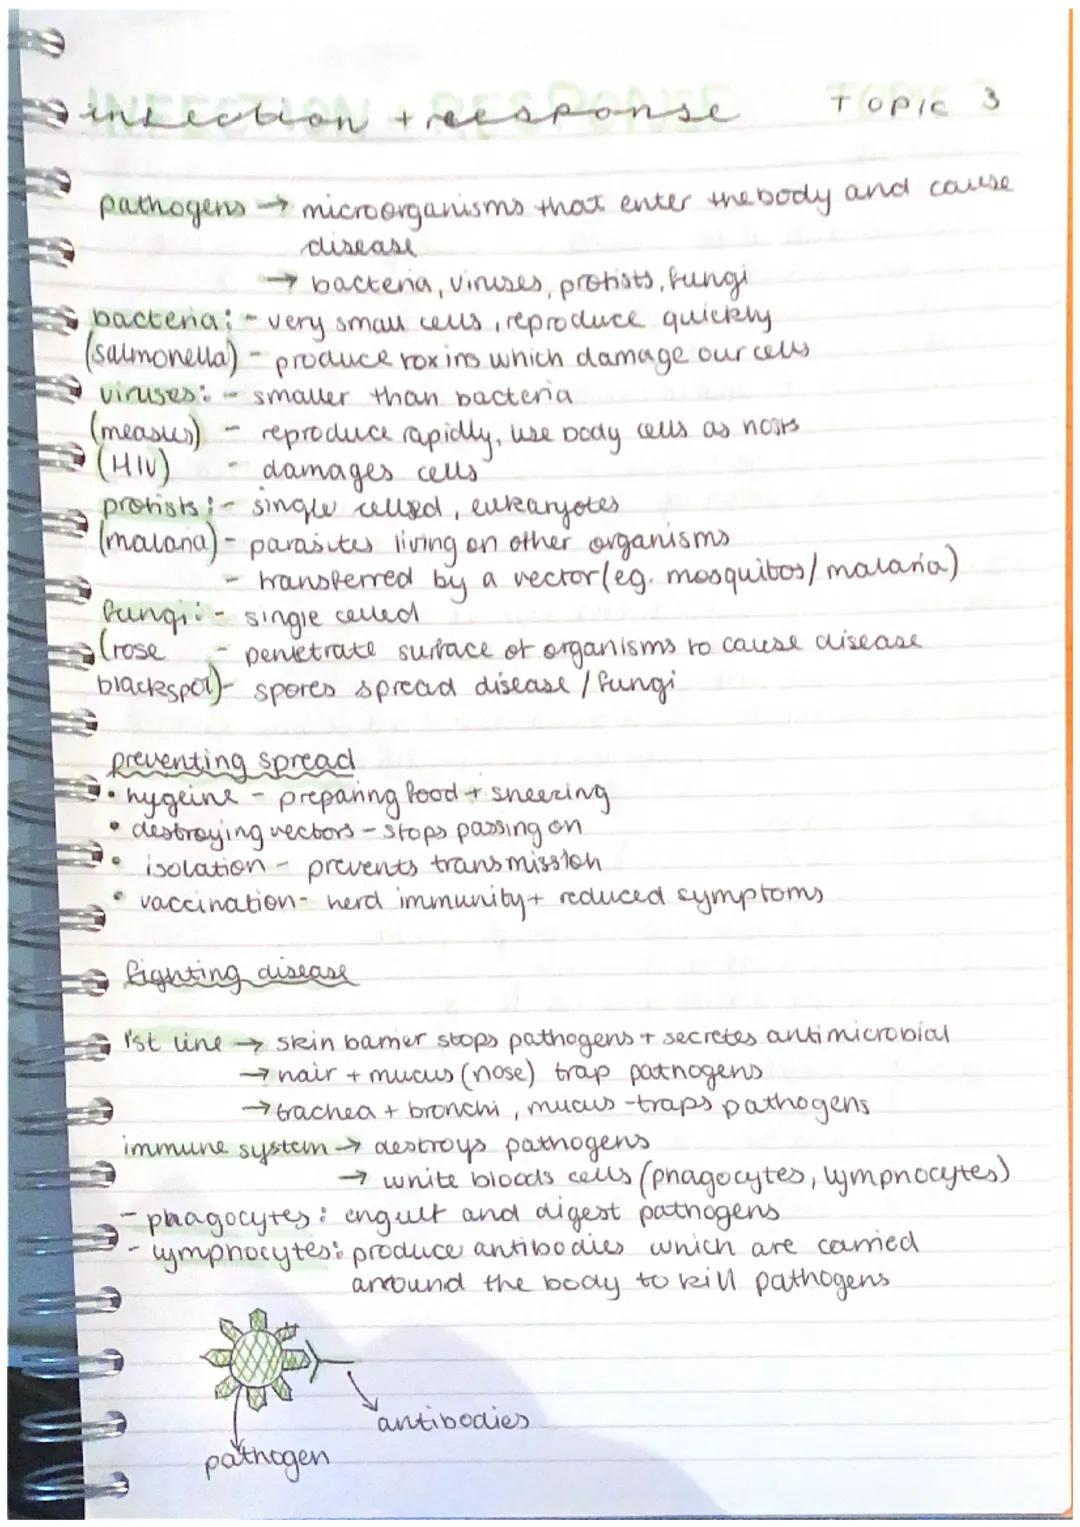 infection + response TOPIC 3
pathogens → microorganisms that enter the body and cause
disease
→ bacteria, viruses, protists, fungi
bacteria: - very small cells, reproduce quickly
(salmonella) - produce toxins which damage our cells
viruses: - smaller than bacteria
(measles) - reproduce rapidly, use body cells as hosts
(HIV) - damages cells
protists: - single celled, eukaryotes
(malaria) - parasites living on other organisms
- transferred by a vector (eg. mosquitos/malaria)
fungi: - single celled
(rose - penetrate surface of organisms to cause disease
blackspot) - spores spread disease / fungi
preventing spread
• hygeine - preparing food + sneezing
• destroying vectors - stops passing on
• isolation - prevents transmission
• vaccination - herd immunity + reduced symptoms
fighting disease
1'st line → skin barrier stops pathogens + secretes antimicrobial
→ hair + mucus (nose) trap pathogens
→ trachea + bronchi, mucus - traps pathogens
immune system → destroys pathogens
→ white bloods cells (phagocytes, lymphocytes)
- phagocytes: engulf and digest pathogens
- lymphocytes: produce antibodies which are carried
around the body to kill pathogens
antibodies
pathogen